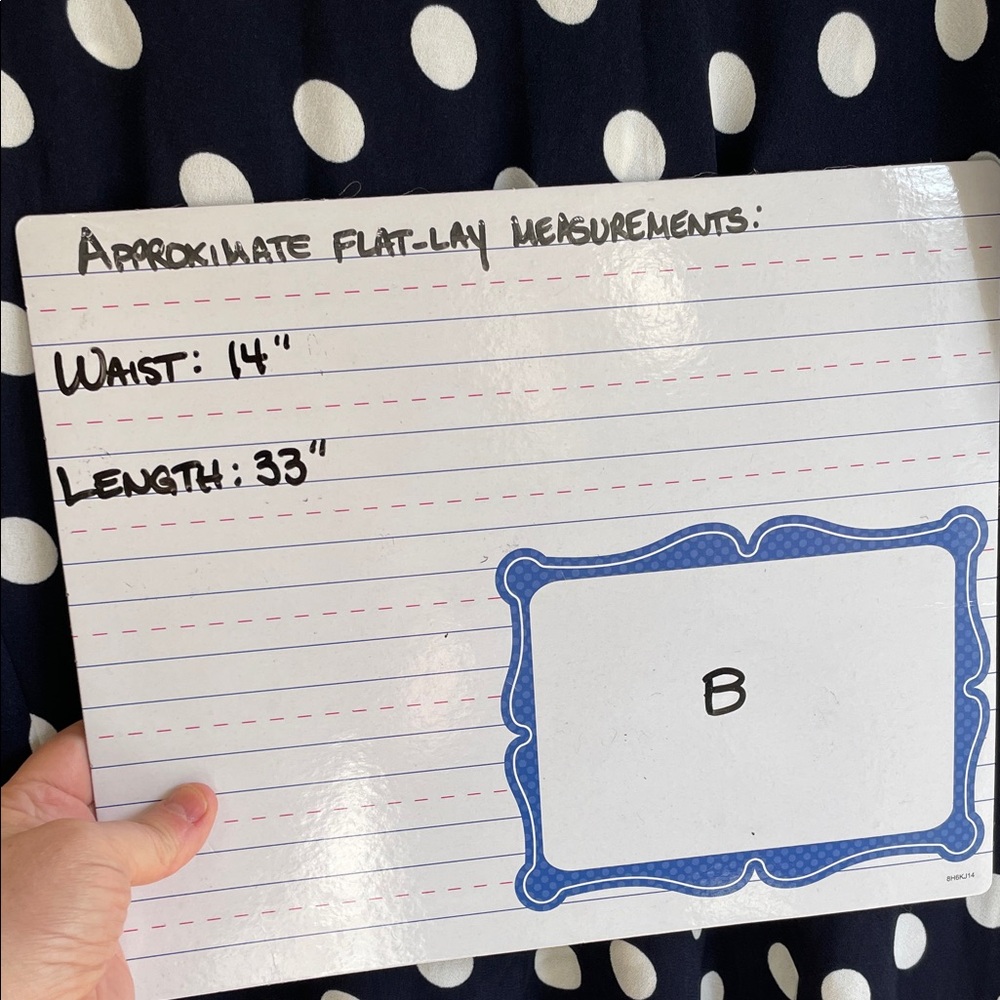 APPROXIMATE FLAT-LAY MEASUREMENTS:
WAIST: 14"
LENGTH: 33"
B
8H6KJ14